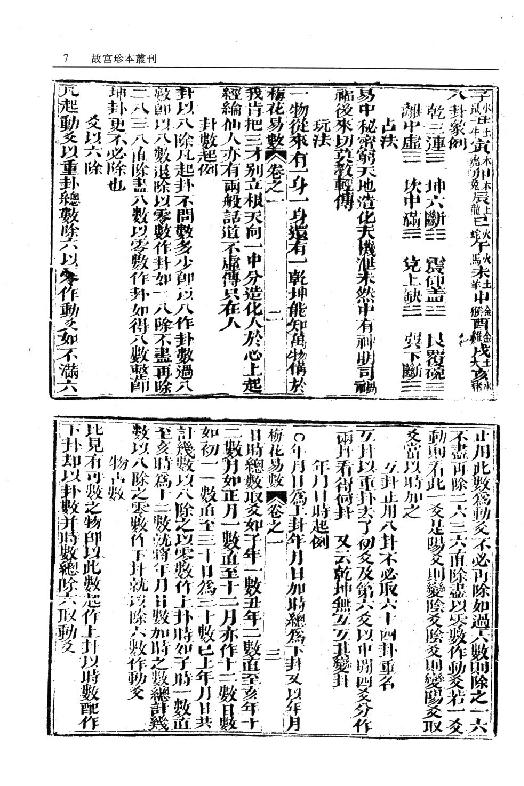 7 故宮珍本叢刊
子水鼠丑土牛寅木虎卯木兔辰土龍巳火蛇午火馬未土羊申金猴酉金雞戌土亥水
八卦象例
乾三連☰ 坤六斷☷ 震仰盂☳ 艮覆碗☶
離中虛☲ 坎中滿☵ 兌上缺☱ 巽下斷☴
占法
易中秘密窮天地造化天機泄未然中有神明司禍
福後來切莫教輕傳
玩法
一物從來有一身一身還有一乾坤能知萬物備於
梅花易數 卷之一 二
我肯把三才別立根天向一中分造化人於心上起
經綸仙人亦有兩般話道不虛傳只在人
卦數起例
卦以八除凡起卦不問數多少即以八作卦數過八
數即以八數退除以零數作卦如一八除不盡再除
二八三八直除盡八數以零數作卦如得八數整即
坤卦更不必除也
爻以六除
凡起動爻以重卦總數除六以零作動爻如不滿六
止用此數為動爻不必再除如過六數則除之一六
不盡再除二六三六直除盡以零數作動爻若一爻
動則看此一爻是陽爻則變陰爻陰爻則變陽爻取
爻當以時加之
互卦止用八卦不必取六十四卦重名
互卦以重卦去了初爻及第六爻以中間四爻分作
兩卦看得何卦 又云乾坤無互互其變卦
年月日時起例
○年月日為上卦年月日加時總為下卦又以年月
梅花易數 卷之一 三
日時總數取爻如子年一數丑年二數直至亥年十
二數月如正月一數直至十二月亦作十二數日數
如初一一數直至三十日為三十數已上年月日共
計幾數以八除之以零數作上卦時如子時一數直
至亥時為十二數就將年月日數加時之數總計幾
數以八除之零數作下卦就以除六數作動爻
物占數
凡見有可數之物即以此數起作上卦以時數配作
下卦却以卦數并時數總除六取動爻